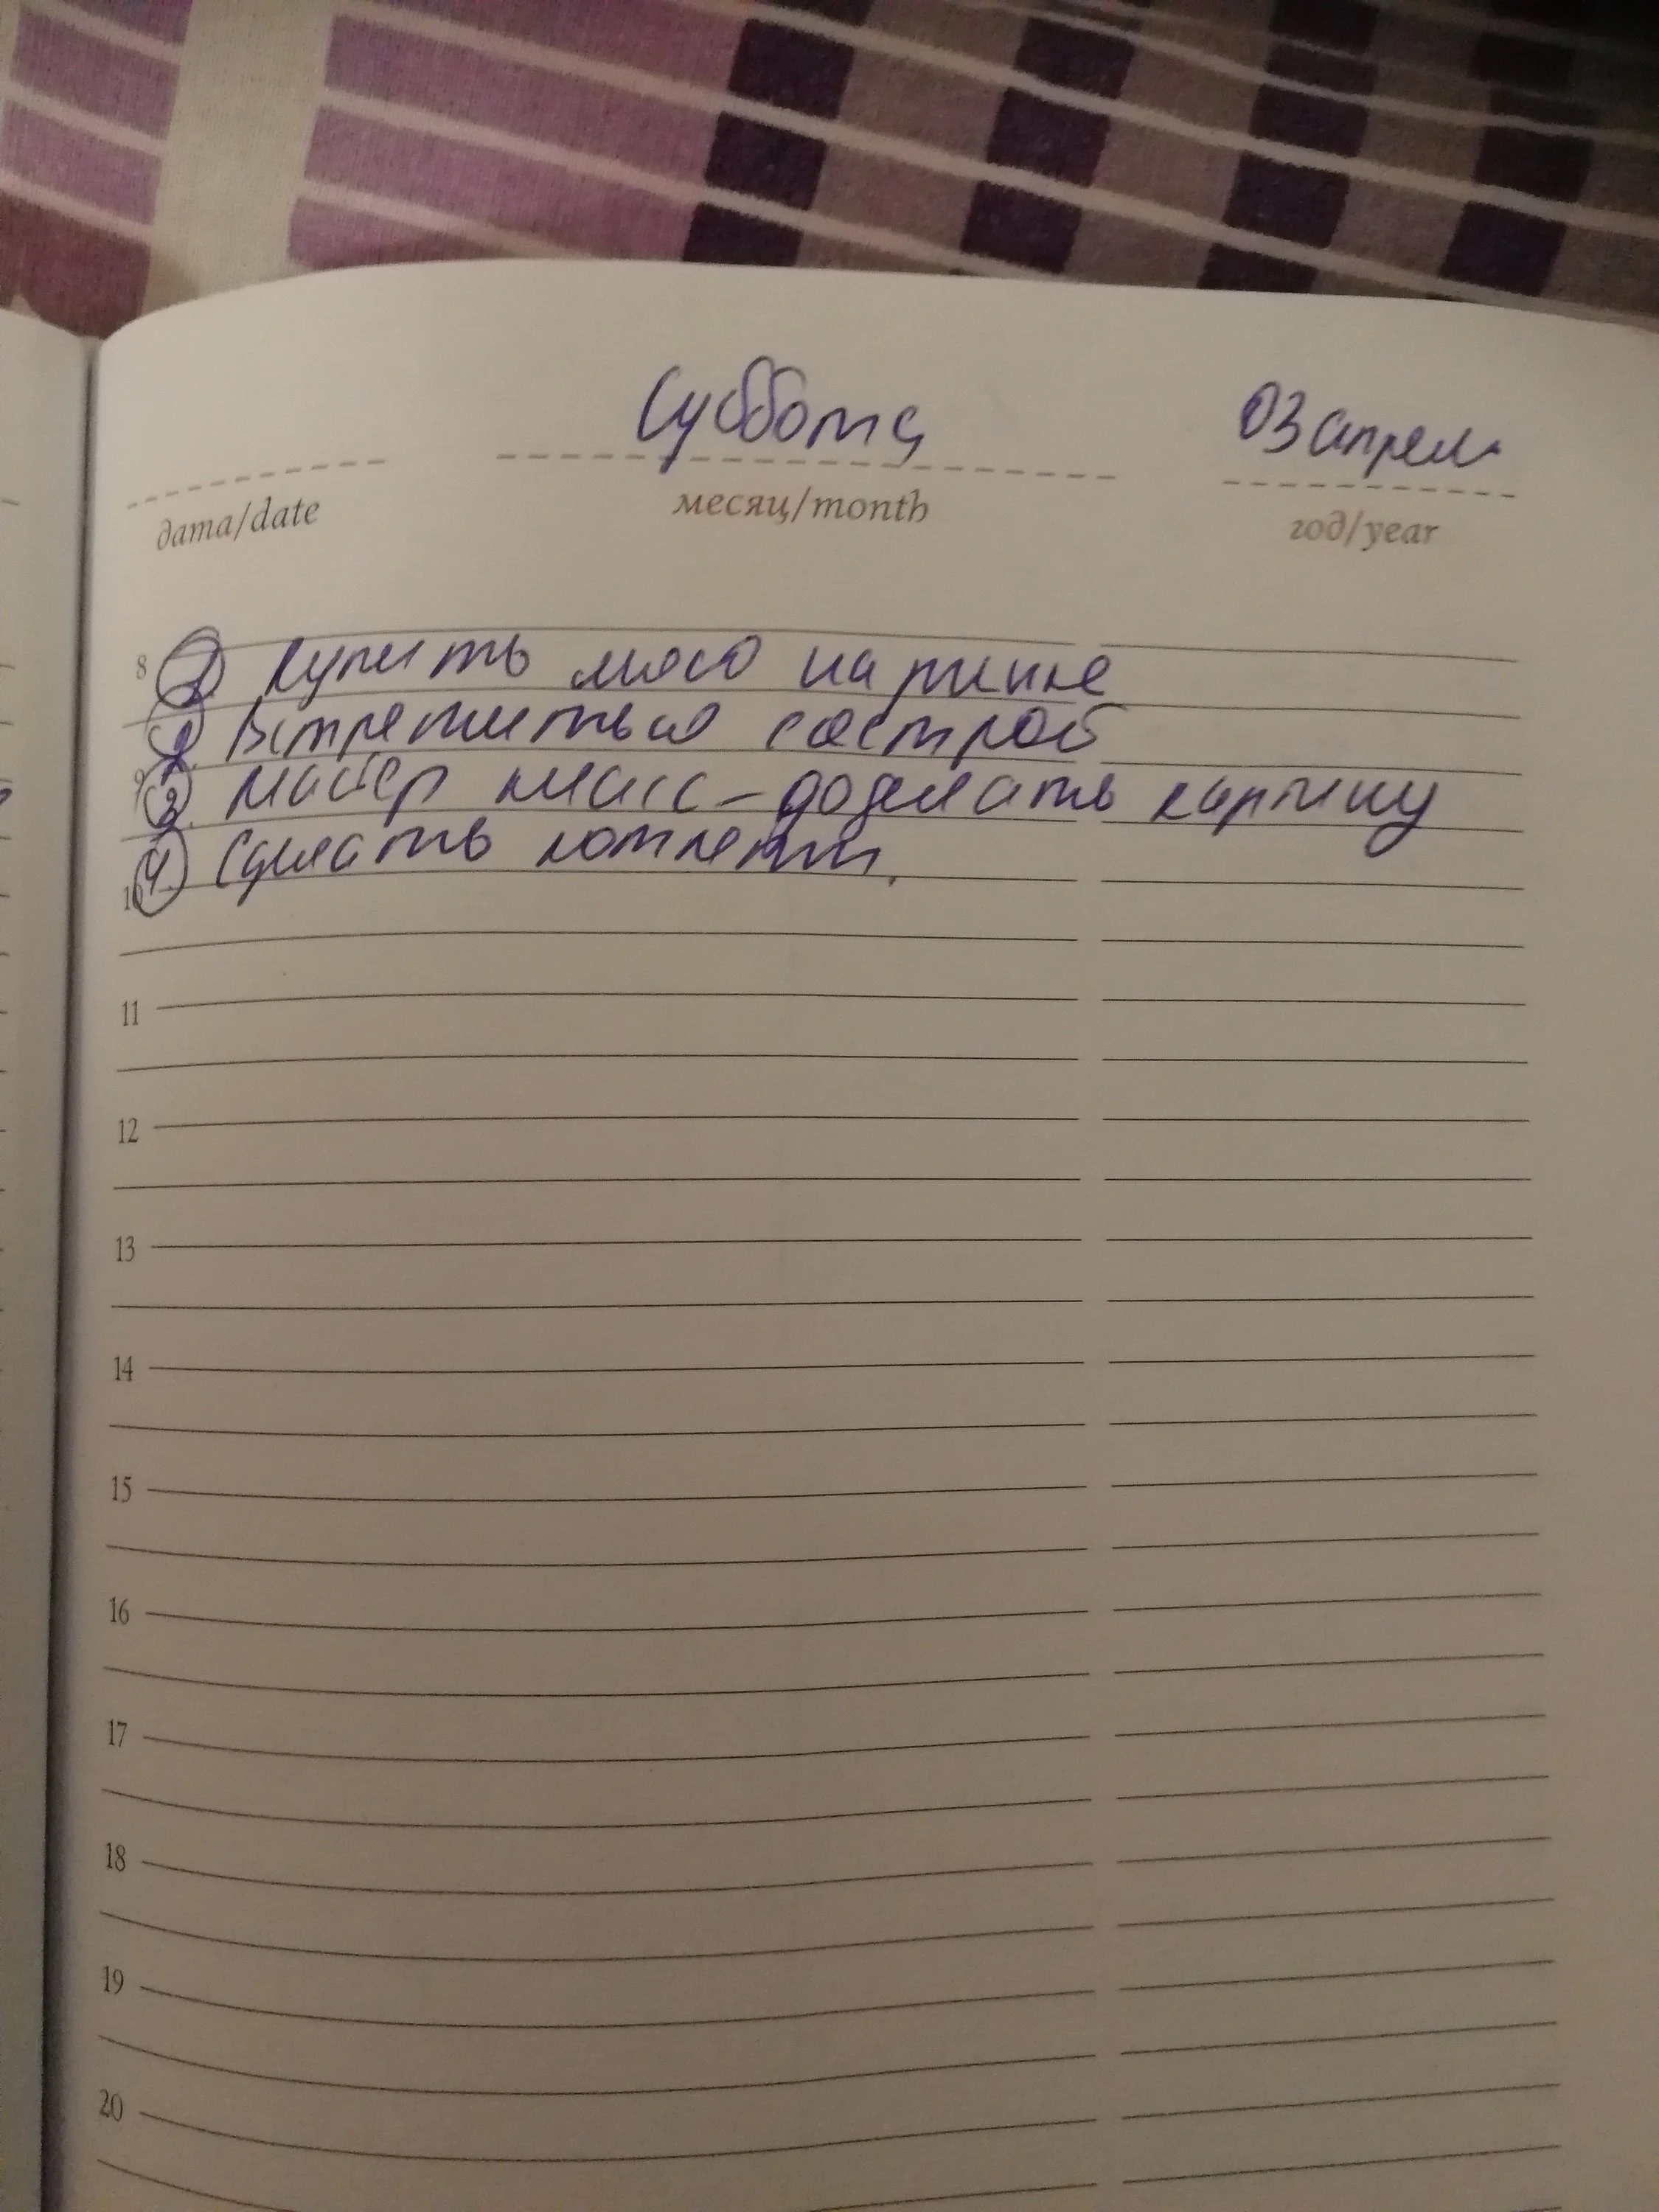 Суббота 03 апреля
дата/date месяц/month год/year
8 1 Купить мясо на рынке
2. Встретиться с сестрой
9 3. Масер класс - доделать картину
10 4 Сделать котлеты.
11
12
13
14
15
16
17
18
19
20